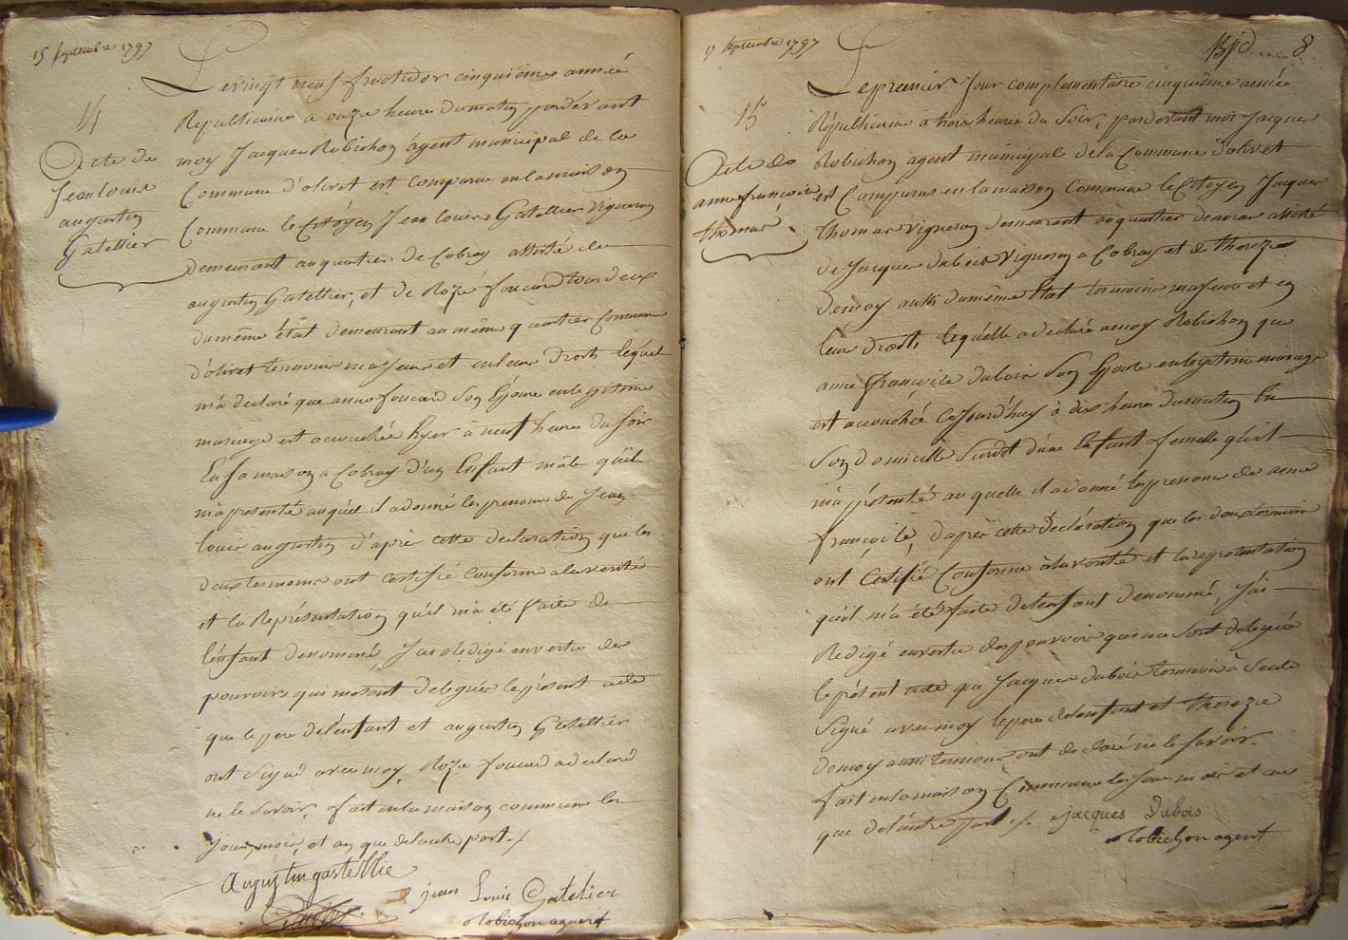 15 septembre 1797
14
Acte de
Jean louis
augustin
Gatellier
Le vingt neuf fructidor cinquieme année
Republicaine a onze heure du matin pardevant
moy Jacque Robichon agent municipal de la
Commune d'olivet est comparu en la maison
Commune le Citoyen Jean louis Gatellier Vigneron
demeurant au quartier de Cobray assisté de
augustin Gatellier, et de Roze foucard tous deux
du même état demeurant au même quartier Commune
d'olivet temoins majeurs et en leur Droits lequel
m'a declaré que anne foucard Son Epouse en legitime
mariage est accouchée hyer à neuf heures du soir
En sa maison a Cobray d'un Enfant mâle qu'il
m'a presenté auquel il a donné les prenoms de Jean
louis augustin d'apré cette declaration que les
deux temoins ont certifié conforme a la verité
et la Représentation qu'il m'a été faite de
l'enfant denommé, J'ai redigé en vertu des
pouvoirs qui me sont delegués le présent acte
que le pere de l'enfant et augustin Gatellier
ont Signé avec moy, Roze foucard a declaré
ne le Savoir, fait en la maison commune les
jour, mois, et an que de l'autre part ./.
Augustin gastellie
jean Louis Gatelier
Robichon agent
17 septembre 1797
8
15
Acte de
anne françoise
thomas
Le premier Jour complementaire cinquième année
Républicaine à trois heures du Soir, pardevant moi Jacques
Robichon agent municipal de la Commune d'olivet
est Comparus en la maison Commune le Citoyen Jacques
thomas Vigneron demeurant au quartier assisté
de Jacques dubois Vigneron a Cobray et de thereze
demoy aussi du même Etat temoins majeurs et en
leur droits lequelle a declaré a moy Robichon que
anne françoise dubois Son Epouse en legitime mariage
est accouchée cejourd'huy à dix heures du matin En
Son domicille Susdit d'une Enfant femelle qu'il
m'a présenté au quelle il a donné les prenoms de anne
françoise, d'après cette déclaration que les deux temoins
ont Certifié Conforme à la verité et la representation
qu'il m'a été faite de l'enfant denommé, J'ai
Redigé en vertu des pouvoirs qui me sont delegués
le présent acte que Jacques dubois temoin à Seul
Signé avec moy le pere de l'enfant et thereze
demoy aussi temoins ont declaré ne le Savoir.
fait en la maison Commune les jour mois et an
que de l'autre part ./. jacques Dubois
Robichon agent